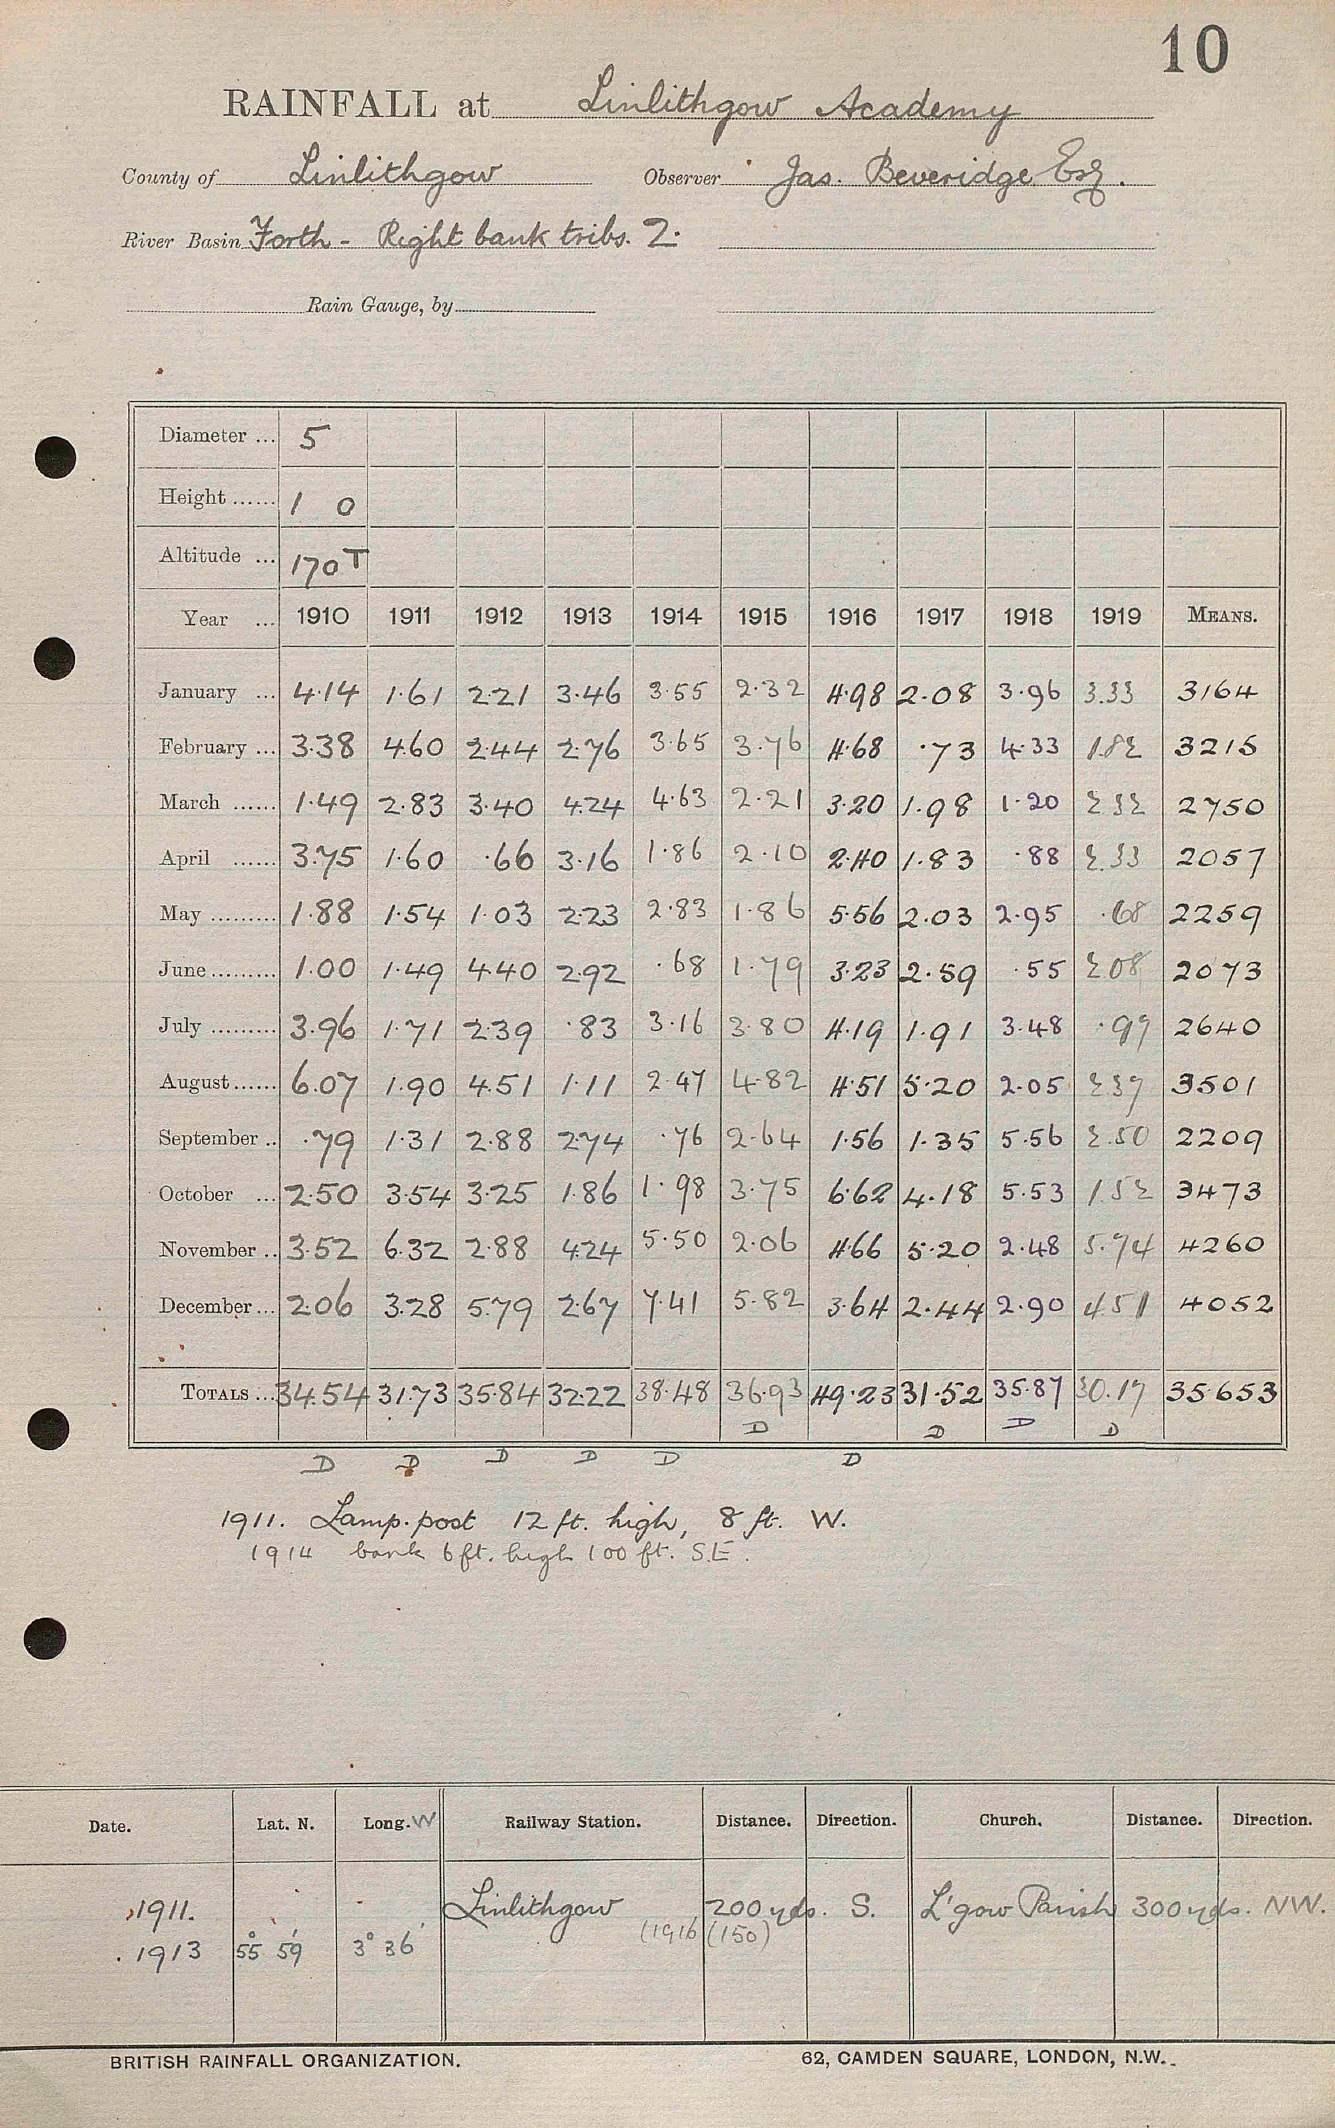 10
RAINFALL at Linlithgow Academy
County of Linlithgow Observer Jas. Beveridge Esq.
River Basin Forth - Right bank tribs. 2.
Rain Gauge, by
Diameter ... 5
Height ...... 1 0
Altitude ... 170 T
Year ... 1910 1911 1912 1913 1914 1915 1916 1917 1918 1919 MEANS.
January ... 4.14 1.61 2.21 3.46 3.55 2.32 4.98 2.08 3.96 3.33 3164
February ... 3.38 4.60 2.44 2.76 3.65 3.76 4.68 .73 4.33 1.82 3215
March ...... 1.49 2.83 3.40 4.24 4.63 2.21 3.20 1.98 1.20 2.32 2750
April ...... 3.75 1.60 .66 3.16 1.86 2.10 2.40 1.83 .88 2.33 2057
May ......... 1.88 1.54 1.03 2.23 2.83 1.86 5.56 2.03 2.95 .68 2259
June ......... 1.00 1.49 4.40 2.92 .68 1.79 3.23 2.59 .55 2.08 2073
July ......... 3.96 1.71 2.39 .83 3.16 3.80 4.19 1.91 3.48 .97 2640
August ...... 6.07 1.90 4.51 1.11 2.47 4.82 4.51 5.20 2.05 2.37 3501
September .. .79 1.31 2.88 2.74 .76 2.64 1.56 1.35 5.56 2.50 2209
October ... 2.50 3.54 3.25 1.86 1.98 3.75 6.62 4.18 5.53 1.52 3473
November .. 3.52 6.32 2.88 4.24 5.50 2.06 4.66 5.20 2.48 5.74 4260
December ... 2.06 3.28 5.79 2.67 7.41 5.82 3.64 2.44 2.90 4.51 4052
TOTALS ... 34.54 31.73 35.84 32.22 38.48 36.93 49.23 31.52 35.87 30.17 35.653
D D D D
D D D D D D
1911. Lamp.post 12 ft. high, 8 ft. W.
1914 bank 6 ft. high 100 ft. S.E.
Date. Lat. N. Long. W Railway Station. Distance. Direction. Church. Distance. Direction.
1911. Linlithgow 200 yds. S. L'gow Parish 300 yds. NW.
(1916 (150)
1913 55° 59' 3° 36'
BRITISH RAINFALL ORGANIZATION. 62, CAMDEN SQUARE, LONDON, N.W.